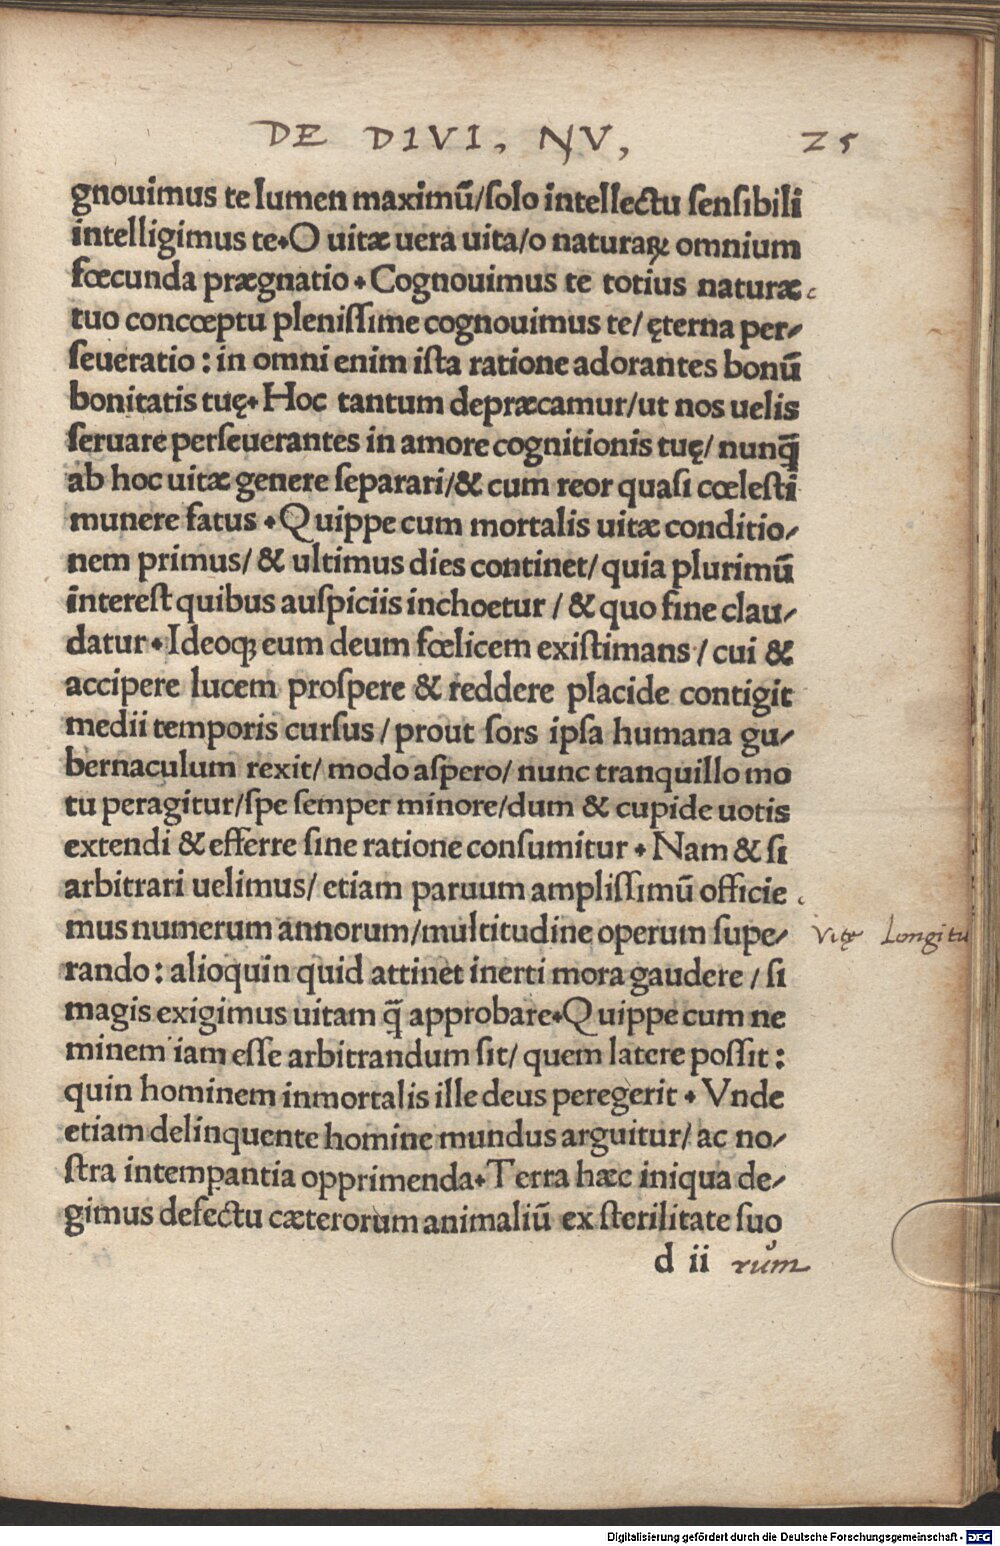 DE DIVI. NV, 25
gnouimus te lumen maximū/ſolo intellectu ſenſibili
intelligimus te⁌O uitæ uera uita/o naturaꝝ omnium
fœcunda prægnatio⁌Cognouimus te totius naturæ
tuo concœptu pleniſſime cognouimus te/ ęterna per⸗
ſeueratio : in omni enim iſta ratione adorantes bonū
bonitatis tuę⁌Hoc tantum depræcamur/ut nos uelis
ſeruare perſeuerantes in amore cognitionis tuę/ nunq̄
ab hoc uitæ genere ſeparari/& cum reor quaſi cœleſti
munere fatus⁌Quippe cum mortalis uitæ conditio⸗
nem primus/ & ultimus dies continet/ quia plurimū
intereſt quibus auſpiciis inchoetur / & quo fine clau⸗
datur⁌Ideoqꝫ eum deum fœlicem exiſtimans / cui &
accipere lucem proſpere & reddere placide contigit
medii temporis curſus / prout ſors ipſa humana gu⸗
bernaculum rexit/ modo aſpero/ nunc tranquillo mo
tu peragitur/ſpe ſemper minore/dum & cupide uotis
extendi & efferre ſine ratione conſumitur⁌Nam & ſi
arbitrari uelimus/ etiam paruum ampliſſimū officie
mus numerum annorum/multitudine operum ſupe⸗
Vitę Longitu
rando : alioquin quid attinet inerti mora gaudere / ſi
magis exigimus uitam q̄ approbare⁌Quippe cum ne
minem iam eſſe arbitrandum ſit/ quem latere poſſit :
quin hominem inmortalis ille deus peregerit⁌Vnde
etiam delinquente homine mundus arguitur/ ac no⸗
ſtra intempantia opprimenda⁌Terra hæc iniqua de⸗
gimus defectu cæterorum animaliū ex ſterilitate ſuo
d ii rum
Digitalisierung gefördert durch die Deutsche Forschungsgemeinschaft - DFG